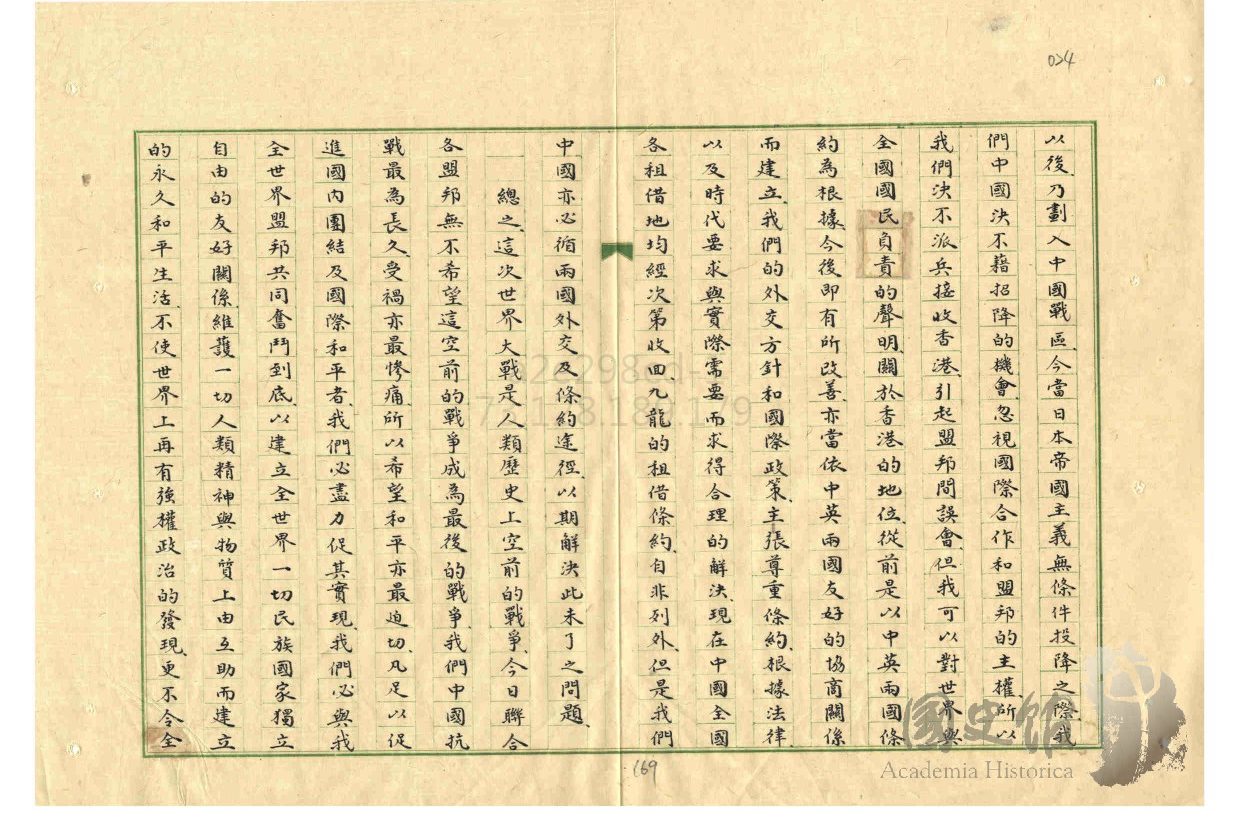 024
以後、乃劃入中國戰區、今當日本帝國主義無條件投降之際、我
們中國決不藉招降的機會、忽視國際合作和盟邦的主權、所以
我們決不派兵接收香港、引起盟邦間誤會、但我可以對世界與
全國國民負責的聲明、關於香港的地位、從前是以中英兩國條
約為根據、今後即有所改善、亦當依中英兩國友好的協商關係
而建立、我們的外交方針和國際政策、主張尊重條約、根據法律、
以及時代要求與實際需要而求得合理的解決、現在中國全國
各租借地均經次第收回、九龍的租借條約、自非列外、但是我們
中國亦必循兩國外交及條約途徑、以期解決此未了之問題、
總之、這次世界大戰是人類歷史上空前的戰爭、今日聯合
各盟邦無不希望這空前的戰爭成為最後的戰爭、我們中國抗
戰最為長久、受禍亦最慘痛、所以希望和平亦最迫切、凡足以促
進國內團結及國際和平者、我們必盡力促其實現、我們必與我
全世界盟邦共同奮鬥到底、以建立全世界一切民族國家獨立
自由的友好關係、維護一切人類精神與物質上由互助而建立
的永久和平生活、不使世界上再有強權政治的發現、更不令全
169
國史館
Academia Historica